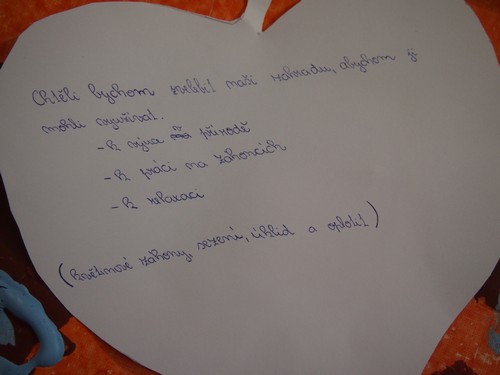 Chtěli bychom zvelebit naši zahradu, abychom ji
mohli využívat.
- k výuce v přírodě
- k práci na záhoncích
- k relaxaci
(květinové záhony, sezení, úklid a oplotit)